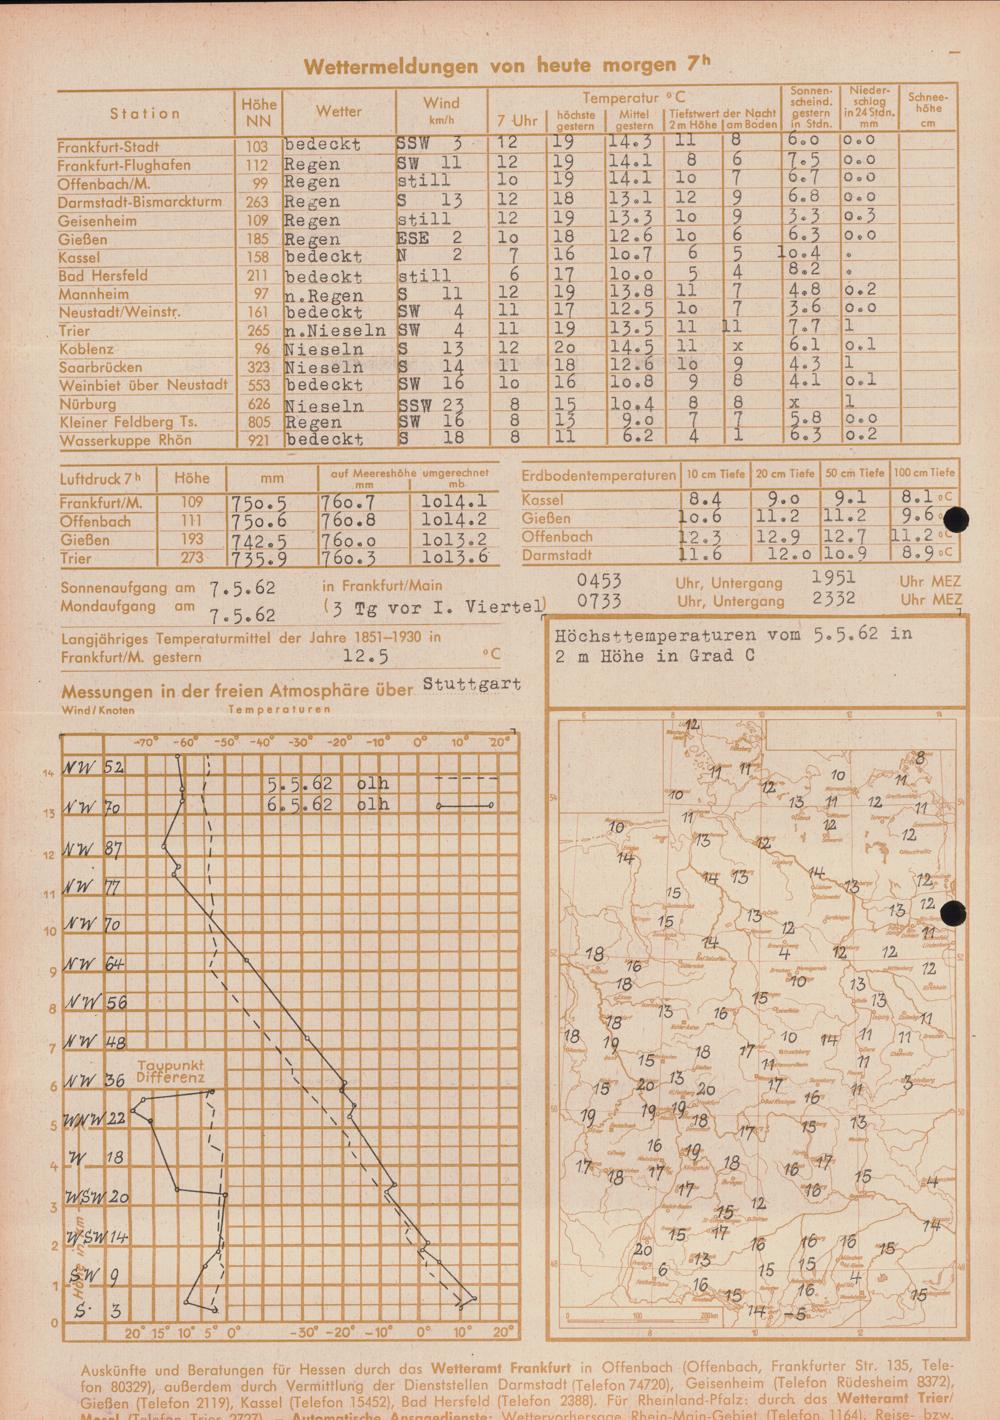 Wettermeldungen von heute morgen 7ʰ
Station Höhe NN Wetter Wind km/h Temperatur °C 7 Uhr höchste gestern Mittel gestern Tiefstwert der Nacht 2 m Höhe am Boden Sonnenscheind. gestern in Stdn. Niederschlag in 24 Stdn. mm Schneehöhe cm
Frankfurt-Stadt 103 bedeckt SSW 3 12 19 14.3 11 8 6.0 0.0
Frankfurt-Flughafen 112 Regen SW 11 12 19 14.1 8 6 7.5 0.0
Offenbach/M. 99 Regen still 10 19 14.1 10 7 6.7 0.0
Darmstadt-Bismarckturm 263 Regen S 13 12 18 13.1 12 9 6.8 0.0
Geisenheim 109 Regen still 12 19 13.3 10 9 3.3 0.3
Gießen 185 Regen ESE 2 10 18 12.6 10 6 6.3 0.0
Kassel 158 bedeckt N 2 7 16 10.7 6 5 10.4 .
Bad Hersfeld 211 bedeckt still 6 17 10.0 5 4 8.2 .
Mannheim 97 n.Regen S 11 12 19 13.8 11 7 4.8 0.2
Neustadt/Weinstr. 161 bedeckt SW 4 11 17 12.5 10 7 3.6 0.0
Trier 265 n.Nieseln SW 4 11 19 13.5 11 11 7.7 1
Koblenz 96 Nieseln S 13 12 20 14.5 11 x 6.1 0.1
Saarbrücken 323 Nieseln S 14 11 18 12.6 10 9 4.3 1
Weinbiet über Neustadt 553 bedeckt SW 16 10 16 10.8 9 8 4.1 0.1
Nürburg 626 Nieseln SSW 23 8 15 10.4 8 8 x 1
Kleiner Feldberg Ts. 805 Regen SW 16 8 13 9.0 7 7 5.8 0.0
Wasserkuppe Rhön 921 bedeckt S 18 8 11 6.2 4 1 6.3 0.2
Luftdruck 7ʰ Höhe mm auf Meereshöhe umgerechnet mm mb
Frankfurt/M. 109 750.5 760.7 1014.1
Offenbach 111 750.6 760.8 1014.2
Gießen 193 742.5 760.0 1013.2
Trier 273 735.9 760.3 1013.6
Erdbodentemperaturen 10 cm Tiefe 20 cm Tiefe 50 cm Tiefe 100 cm Tiefe
Kassel 8.4 9.0 9.1 8.1 °C
Gießen 10.6 11.2 11.2 9.6
Offenbach 12.3 12.9 12.7 11.2 °C
Darmstadt 11.6 12.0 10.9 8.9 °C
Sonnenaufgang am 7.5.62 in Frankfurt/Main 0453 Uhr, Untergang 1951 Uhr MEZ
Mondaufgang am 7.5.62 (3 Tg vor I. Viertel) 0733 Uhr, Untergang 2332 Uhr MEZ
Langjähriges Temperaturmittel der Jahre 1851–1930 in
Frankfurt/M. gestern 12.5 °C
Messungen in der freien Atmosphäre über Stuttgart
Wind/Knoten Temperaturen
-70° -60° -50° -40° -30° -20° -10° 0° 10° 20°
14 NW 52
5.5.62 01h
6.5.62 01h
13 NW 70
12 NW 87
11 NW 77
10 NW 70
9 NW 64
8 NW 56
7 NW 48
Taupunkt
Differenz
6 NW 36
5 WNW 22
4 W 18
3 WSW 20
2 WSW 14
1 SW 9
0 S 3
Höhe in km
20° 15° 10° 5° 0° -30° -20° -10° 0° 10° 20°
Höchsttemperaturen vom 5.5.62 in
2 m Höhe in Grad C
6 8 10 12 14
12
8
11 11 10 11
12
10 13 11 12 11
11 12
10 13 12 12
14
14 13 14 13 12
15
15 13 13 12
14 12 11
18 4 12 12
16 12
18 10 13
15 13
13 16 11
18
18 19 10 14 11 11
15 18 17 11 11
15 20 13 20 17 11 3
19 19 19 18 16
17 15 13
16 19
17 18 17 18 16 17
17 16 15 4
15 12
15 17 14
20 16 16 16 15
6 13 15 15 4
16 15 16
14 -5
0 100 200km
8 10 12
Auskünfte und Beratungen für Hessen durch das Wetteramt Frankfurt in Offenbach (Offenbach, Frankfurter Str. 135, Tele-
fon 80329), außerdem durch Vermittlung der Dienststellen Darmstadt (Telefon 74720), Geisenheim (Telefon Rüdesheim 8372),
Gießen (Telefon 2119), Kassel (Telefon 15452), Bad Hersfeld (Telefon 2388). Für Rheinland-Pfalz: durch das Wetteramt Trier/
Mosel (Telefon Trier 2727). — Automatische Ansagedienste: Wettervorhersage Rhein-Main-Gebiet (Telefon 1164), Reise- bzw.